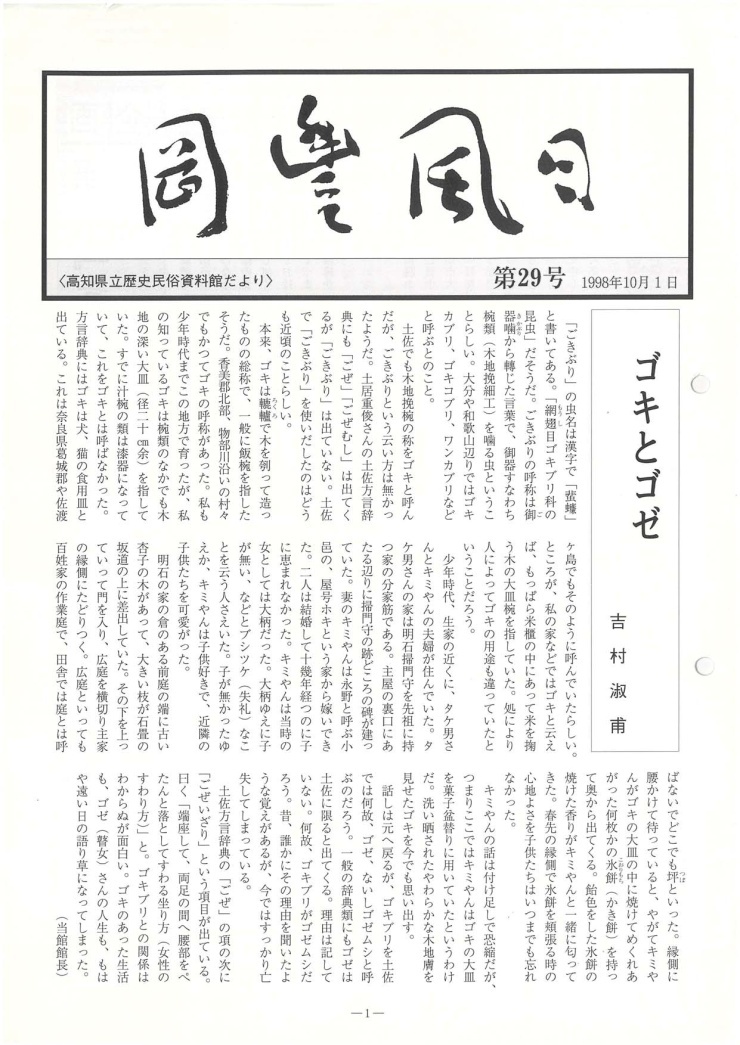 岡豊風日
〈高知県立歴史民俗資料館だより〉
第29号
1998年10月1日
ゴキとゴゼ
吉村淑甫
「ごきぶり」の虫名は漢字で「蜚蠊」
と書いてある。「網翅目ゴキブリ科の
昆虫」だそうだ。ごきぶりの呼称は御
器噛から転じた言葉で、御器すなわち
椀類（木地挽細工）を噛る虫というこ
とらしい。大分や和歌山辺りではゴキ
カブリ、ゴキコブリ、ワンカブリなど
と呼ぶとのこと。
土佐でも木地挽椀の称をゴキと呼ん
だが、ごきぶりという云い方は無かっ
たようだ。土居重俊さんの土佐方言辞
典にも「ごぜ」「ごぜむし」は出てく
るが「ごきぶり」は出ていない。土佐
で「ごきぶり」を使いだしたのはどう
も近頃のことらしい。
本来、ゴキは轆轤で木を刳って造っ
たものの総称で、一般に飯椀を指した
そうだ。香美郡北部、物部川沿いの村々
でもかつてゴキの呼称があった。私も
少年時代までこの地方で育ったが、私
の知っているゴキは椀類のなかでも木
地の深い大皿（径二十㎝余）を指して
いた。すでに汁椀の類は漆器になって
いて、これをゴキとは呼ばなかった。
方言辞典にはゴキは犬、猫の食用皿と
出ている。これは奈良県葛城郡や佐渡
ヶ島でもそのように呼んでいたらしい。
ところが、私の家などではゴキと云え
ば、もっぱら米櫃の中にあって米を掬
う木の大皿椀を指していた。処により
人によってゴキの用途も違っていたと
いうことだろう。
少年時代、生家の近くに、タケ男さ
んとキミやんの夫婦が住んでいた。タ
ケ男さんの家は明石掃門守を先祖に持
つ家の分家筋である。主屋の裏口にあ
たる辺りに掃門守の跡どころの碑が建っ
ていた。妻のキミやんは永野と呼ぶ小
邑の、屋号ホキという家から嫁いでき
た。二人は結婚して十幾年経つのに子
に恵まれなかった。キミやんは当時の
女としては大柄だった。大柄ゆえに子
が無い、などとブシツケ（失礼）なこ
とを云う人さえいた。子が無かったゆ
えか、キミやんは子供好きで、近隣の
子供たちを可愛がった。
明石の家の倉のある前庭の端に古い
杏子の木があって、大きい枝が石畳の
坂道の上に差出していた。その下を上っ
ていって門を入り、広庭を横切り主家
の縁側にたどりつく。広庭といっても
百姓家の作業庭で、田舎では庭とは呼
ばないでどこでも坪といった。縁側に
腰かけて待っていると、やがてキミや
んがゴキの大皿の中に焼けてめくれあ
がった何枚かの氷餅（かき餅）を持っ
て奥から出てくる。飴色をした氷餅の
焼けた香りがキミやんと一緒に匂って
きた。春先の縁側で氷餅を頬張る時の
心地よさを子供たちはいつまでも忘れ
なかった。
キミやんの話は付け足しで恐縮だが、
つまりここではキミやんはゴキの大皿
を菓子盆替りに用いていたというわけ
だ。洗い晒されたやわらかな木地膚を
見せたゴキを今でも思い出す。
話しは元へ戻るが、ゴキブリを土佐
では何故、ゴゼ、ないしゴゼムシと呼
ぶのだろう。一般の辞典類にもゴゼは
土佐に限ると出てくる。理由は記して
いない。何故、ゴキブリがゴゼムシだ
ろう。昔、誰かにその理由を聞いたよ
うな覚えがあるが、今ではすっかり亡
失してしまっている。
土佐方言辞典の「ごぜ」の項の次に
「ごぜいざり」という項目が出ている。
曰く「端座して、両足の間へ腰部をぺ
たんと落としてすわる坐り方（女性の
すわり方）」と。ゴキブリとの関係は
わからぬが面白い。ゴキのあった生活
も、ゴゼ（瞽女）さんの人生も、もは
や遠い日の語り草になってしまった。
（当館館長）
—1—